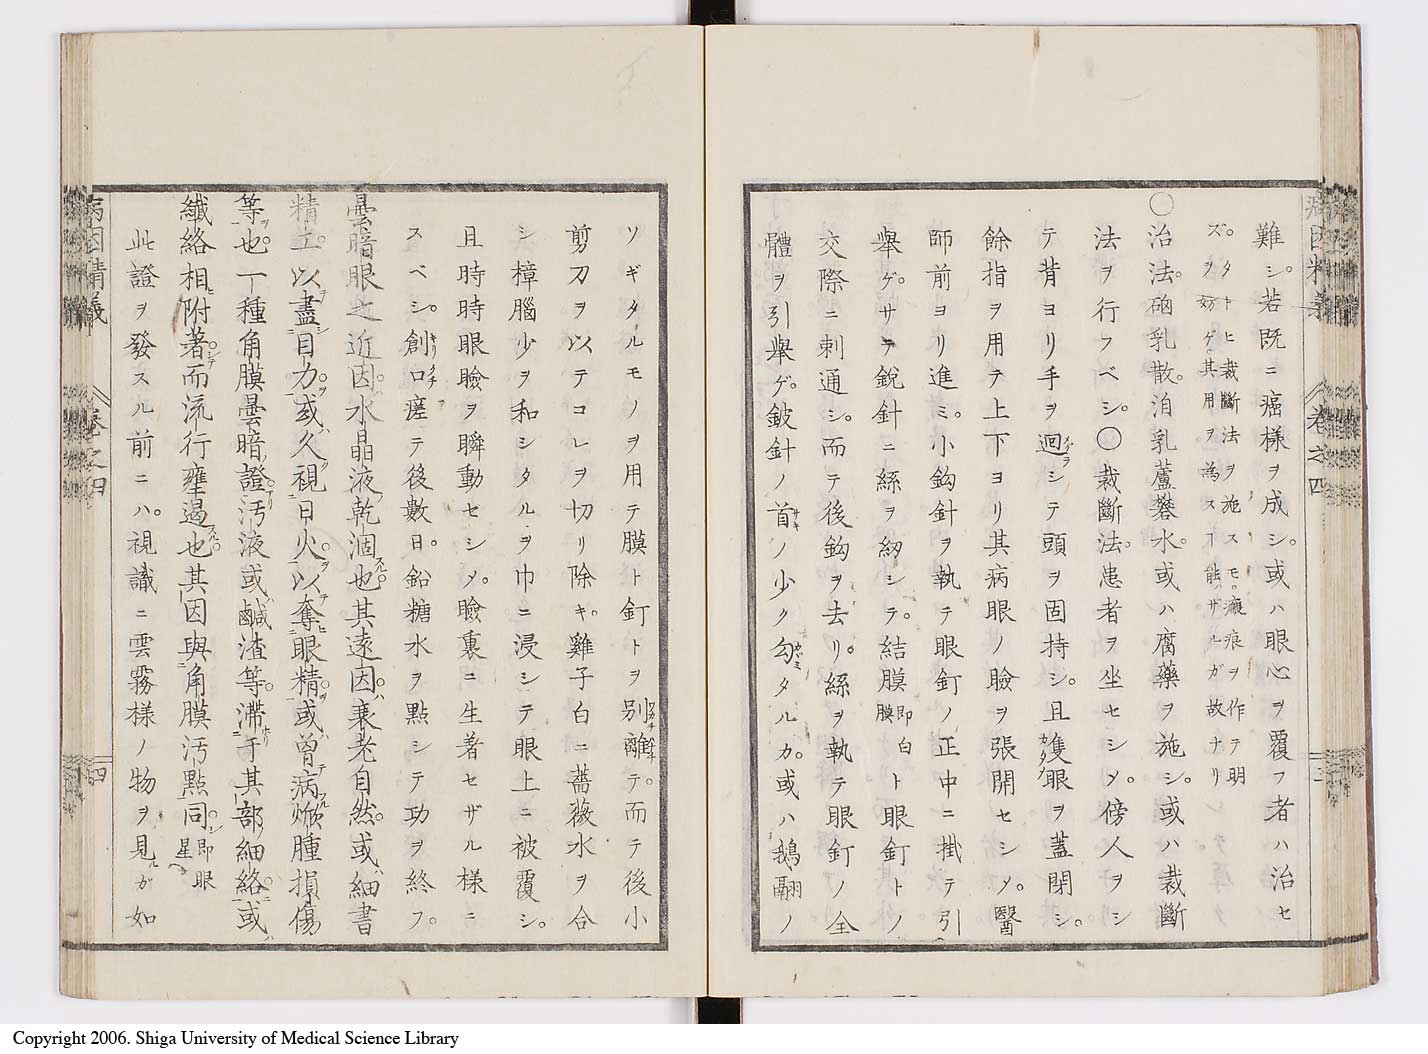 難シ。若既ニ癌様ヲ成シ。或ハ眼心ヲ覆フ者ハ治セ
ズ。タトヒ裁斷法ヲ施スモ。瘢痕ヲ作テ明
ヲ妨ゲ。其用ヲ為スヿ能ザルガ故ナリ
〇治法。硇乳散。泊乳蘆礬水。或ハ腐藥ヲ施シ。或ハ裁斷
法ヲ行フベシ。〇裁斷法。患者ヲ坐セシメ。傍人ヲシ
テ背ヨリ手ヲ迴シテ頭ヲ固持シ。且隻眼ヲ蓋閉シ。
餘指ヲ用テ上下ヨリ其病眼ノ瞼ヲ張開セシメ。醫
師前ヨリ進ミ。小鈎針ヲ執テ眼釘ノ正中ニ掛テ引
擧ゲ。サテ鋭針ニ絲ヲ紉シテ。結膜即白膜ト眼釘トノ
交際ニ刺通シ。而テ後鈎ヲ去リ。絲ヲ執テ眼釘ノ全
體ヲ引擧ゲ。鈹針ノ首ノ少ク勾タルカ。或ハ鵝翮ノ
病因精義 卷之四
ソギタルモノヲ用テ膜ト釘トヲ別離テ。而テ後小
剪刀ヲ以テコレヲ切リ除キ。雞子白ニ薔薇水ヲ合
シ樟腦少ヲ和シタルヲ巾ニ浸シテ眼上ニ被覆シ。
且時時眼瞼ヲ瞬動セシメ。瞼裏ニ生着セザル様ニ
スベシ。創口瘥テ後數日。鉛糖水ヲ點シテ功ヲ終フ。
曇暗眼之近因。水晶液乾涸也。其遠因。衰老自然。或細書
精工。以盡目力。或久視日火。以奪眼精。或曾病焮腫損傷
等也。一種角膜曇暗證。汚液或鹹渣等。滯于其部細絡。或
纖絡相附著而流行壅遏也。其因與角膜汚點同即眼星
此證ヲ發スル前ニハ。視識ニ雲霧様ノ物ヲ見ルガ如
病因精義 卷之四 四